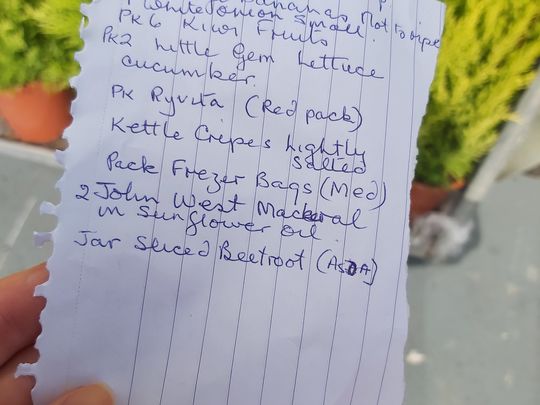 Bananas Not to ripe
1 White onion small.
Pk 6 Kiwi Fruits
Pk2 Little Gem Lettuce
cucumber.
Pk Ryvita (Red pack)
Kettle Cripes Lightly
Salted
Pack Frezer Bags (Med)
2 John West Mackeral
in Sunflower oil.
Jar Sliced Beetroot (ASDA)